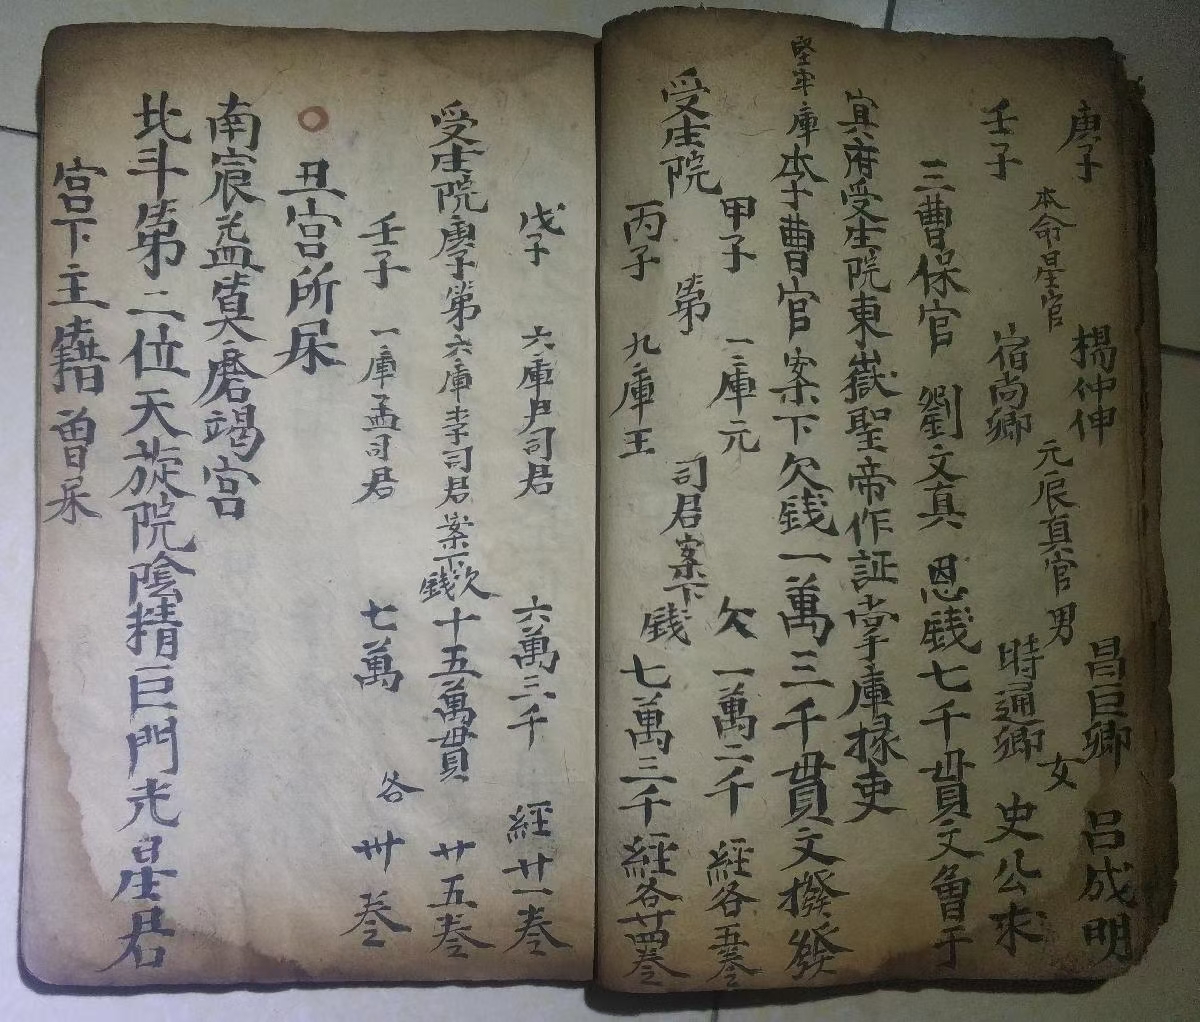 庚子 楊仲伸 昌巨卿 呂成明
本命星官 元辰真官 男 女
壬子 宿尚卿 時通卿 史公求
三曹保官 劉文真 恩錢七千貫文會于
冥府受生院東嶽聖帝作証掌庫掾吏
堅牢庫李曹官案下欠錢一萬三千貫文撥發
甲子 一二庫元 欠 一萬二千 經各五卷
受生院 第 司君案下 錢
丙子 九庫王 七萬三千 經各廿四卷
戊子 六庫尹司君 六萬三千 經廿一卷
受生院庚子第六庫李司君案下欠錢十五萬貫 廿五卷
壬子 一庫孟司君 七萬 各 卅卷
丑宮所屎
南宸益算磨竭宮
北斗第二位天旋院陰精巨門光星君
宮下主籍曾屎